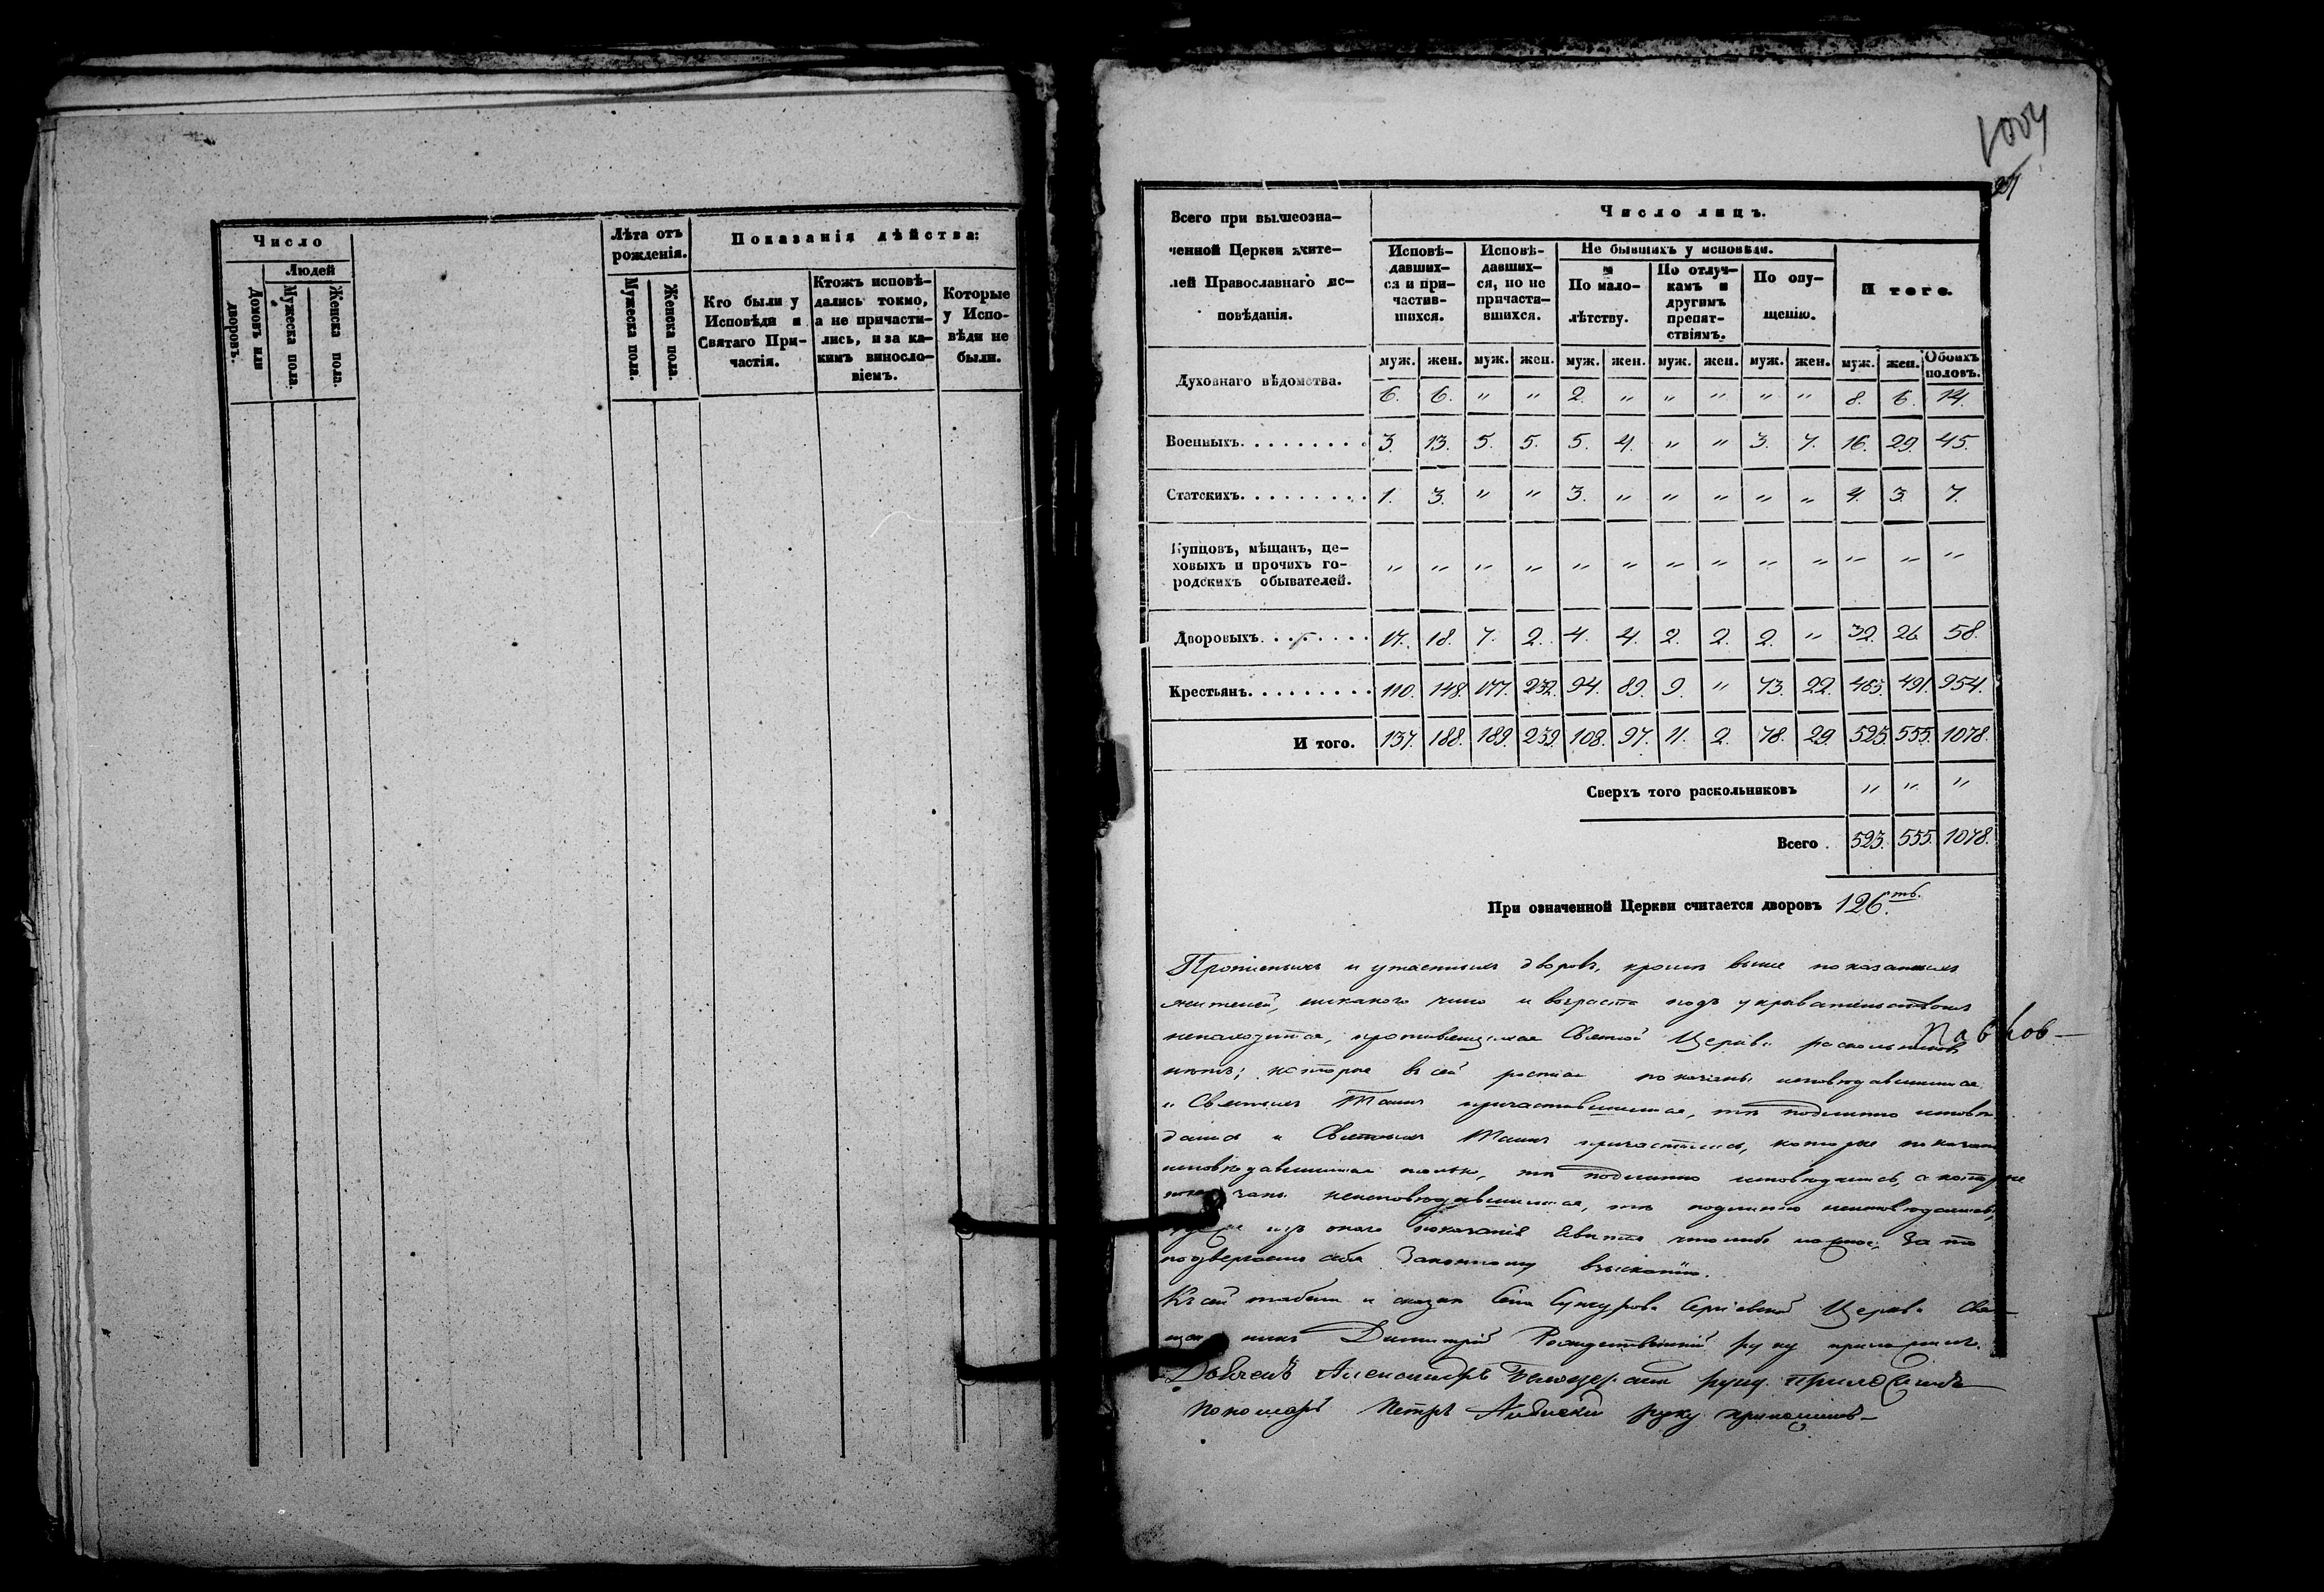 Число
Людей
Домовъ или дворовъ.
Мужеска пола.
Женска пола.
Лѣта отъ рожденія.
Мужеска пола.
Женска пола.
Показанія дѣйства:
Кто были у
Исповѣди и
Святаго При-
частія.
Ктожъ исповѣ-
дались токмо,
а не причасти-
лись, и за ка-
кимъ винословіемъ.
Которые
у Испо-
вѣди не
были.
1004
Всего при вышеозна-
ченной Церкви жите-
лей Православнаго ис-
повѣданія.
Число лицъ.
Исповѣ-
давших-
ся и при-
частив-
шихся.
Исповѣ-
давших-
ся, но не
причасти-
вшихся.
Не бывшихъ у исповѣди.
По мало-
лѣтству.
По отлуч-
камъ и
другимъ
препят-
ствіямъ.
По опу-
щенію.
И того.
муж. жен. муж. жен. муж. жен. муж. жен. муж. жен. муж. жен. Обоихъ половъ.
Духовнаго вѣдомства. 6. 6. " " 2. " " " " " 8. 6. 14.
Военныхъ. 3. 13. 5. 5. 5. 4. " " 3. 7. 16. 29. 45.
Статскихъ. 1. 3. " " 3. " " " " " 4. 3. 7.
Купцовъ, мѣщанъ, це-
ховыхъ и прочихъ го-
родскихъ обывателей. " " " " " " " " " " " " "
Дворовыхъ. 17. 18. 7. 2. 4. 4. 2. 2. 2. " 32. 26. 58.
Крестьянъ. 110. 148. 177. 232. 94. 89. 9. " 73. 22. 463. 491. 954.
И того. 137. 188. 189. 239. 108. 97. 11. 2. 78. 29. 523. 555. 1078.
Сверхъ того раскольниковъ " " "
Всего. 523. 555. 1078.
При означенной Церкви считается дворовъ 126.ть.
дворовъ, кромѣ выше показанныхъ
жителей, никакого чина и возраста подъ укрывательствомъ
ненаходится, Святой Церкви раскольниковъ
нѣтъ; которые въ сей росписи показаны исповѣдавшимися
и Святыхъ Таинъ причастившимися, тѣ подлинно исповѣ-
дались и Святыхъ Таинъ причастились, которые показаны
исповѣдавшимися только, тѣ подлинно исповѣдались, а которые
показаны неисповѣдавшимися, тѣ подлинно неисповѣдались,
изъ онаго показанія явится что либо ложное, за то
подвергаемъ себя законному взысканію.
Къ сей табели и сказкѣ Села Сергіевской Церкви Свя-
щенникъ Димитрій Рождественскій руку приложилъ.
Дьячекъ Александръ руку приложилъ
Пономарь Петръ руку приложилъ